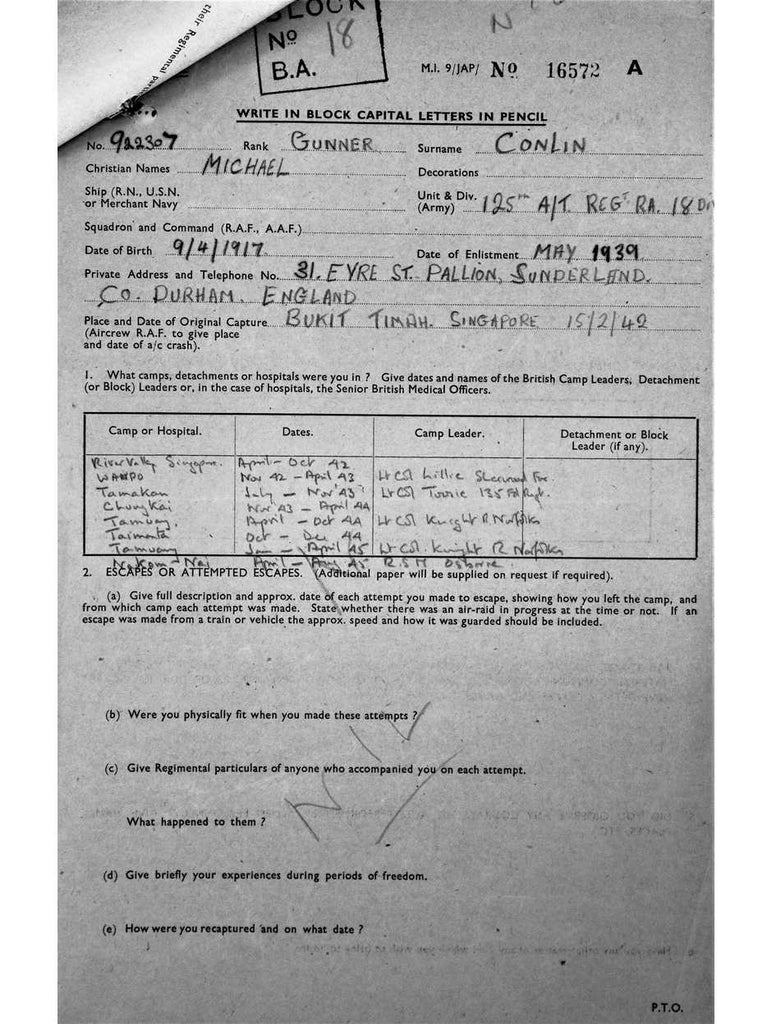 their Regimental parti
BLOCK
No 18
B.A.
NIL
M.I. 9/JAP/ No 16572 A
WRITE IN BLOCK CAPITAL LETTERS IN PENCIL
No. 922307 Rank GUNNER Surname CONLIN
Christian Names MICHAEL Decorations
Ship (R.N., U.S.N. or Merchant Navy
Unit & Div. (Army) 125TH A/T. REGT. RA. 18 DIV
Squadron and Command (R.A.F., A.A.F.)
Date of Birth 9/4/1917 Date of Enlistment MAY 1939
Private Address and Telephone No. 31. EYRE ST. PALLION, SUNDERLAND.
CO. DURHAM. ENGLAND
Place and Date of Original Capture BUKIT TIMAH. SINGAPORE 15/2/42
(Aircrew R.A.F. to give place
and date of a/c crash).
1. What camps, detachments or hospitals were you in ? Give dates and names of the British Camp Leaders, Detachment
(or Block) Leaders or, in the case of hospitals, the Senior British Medical Officers.
Camp or Hospital. Dates. Camp Leader. Detachment or Block Leader (if any).
River Valley Singapore. April - Oct 42
WAMPO Nov 42 - April 43 Lt Col Lillie Sherwood For
Tamakan July - Nov 43 Lt Col Toosie 135 Fd Regt.
Chungkai Nov 43 - April 44
Tamuang, April - Oct 44 Lt Col Knight R Norfolks
Oct - Dec 44
Tamuang Jan - April 45 Lt Col Knight R Norfolks
Nakom-Nai April - Aug 45 R.S.M Osborne
2. ESCAPES OR ATTEMPTED ESCAPES. (Additional paper will be supplied on request if required).
(a) Give full description and approx. date of each attempt you made to escape, showing how you left the camp, and
from which camp each attempt was made. State whether there was an air-raid in progress at the time or not. If an
escape was made from a train or vehicle the approx. speed and how it was guarded should be included.
(b) Were you physically fit when you made these attempts ?
(c) Give Regimental particulars of anyone who accompanied you on each attempt.
NIL
What happened to them ?
(d) Give briefly your experiences during periods of freedom.
(e) How were you recaptured and on what date ?
P.T.O.